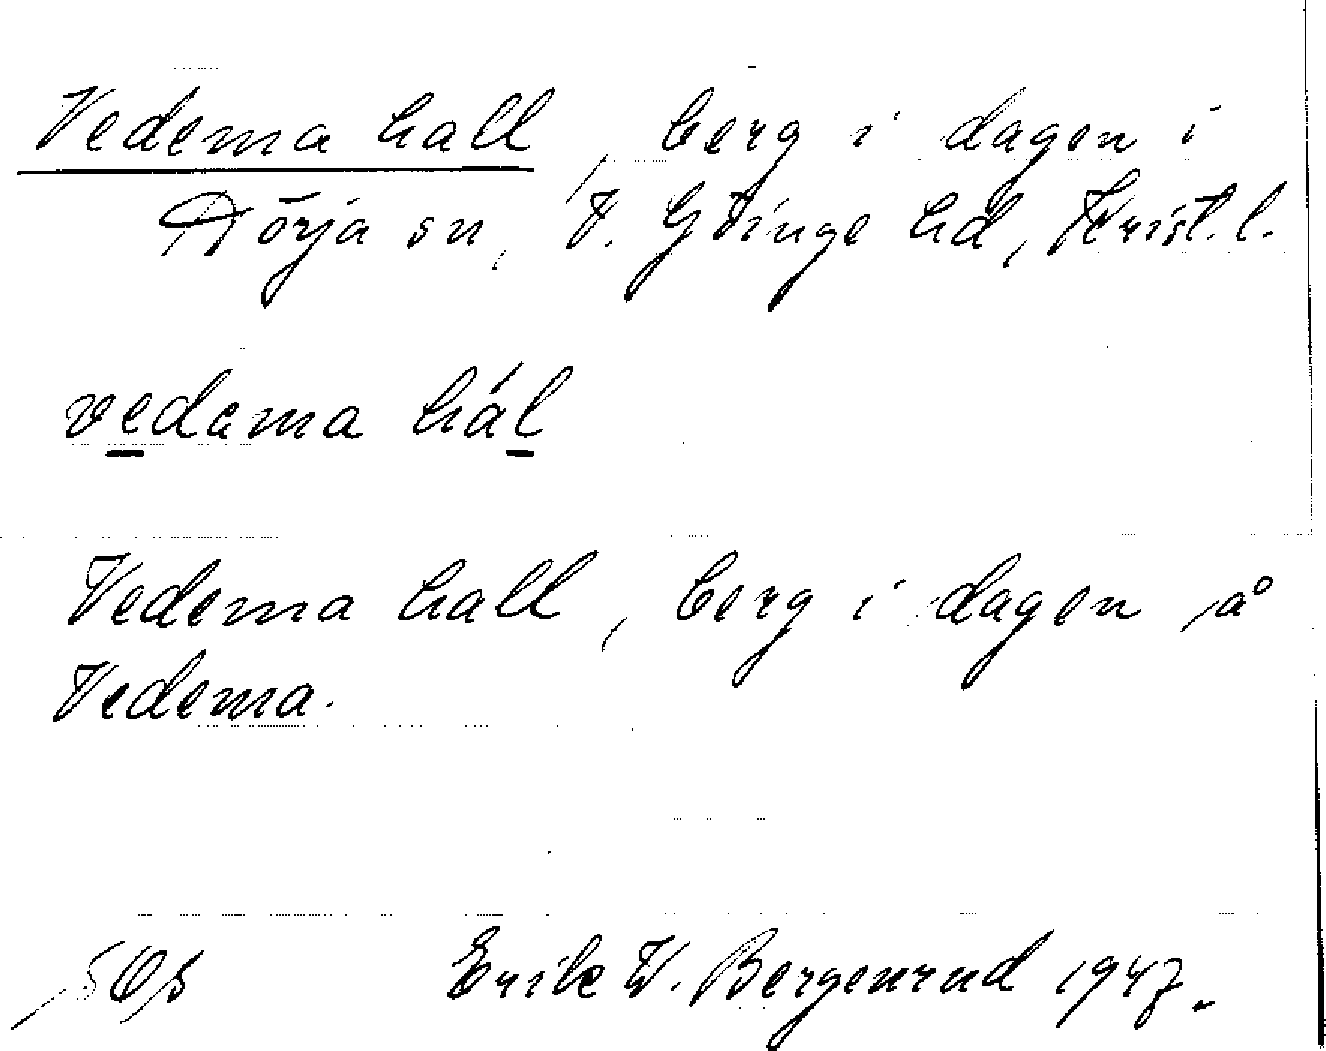 Vedema hall, berg i dagen i
Örja sn, V. Göinge hd, Krist. l.
vedəma hál
Vedema hall, berg i dagen på
Vedema.
Erik W. Bergenrud 1947.